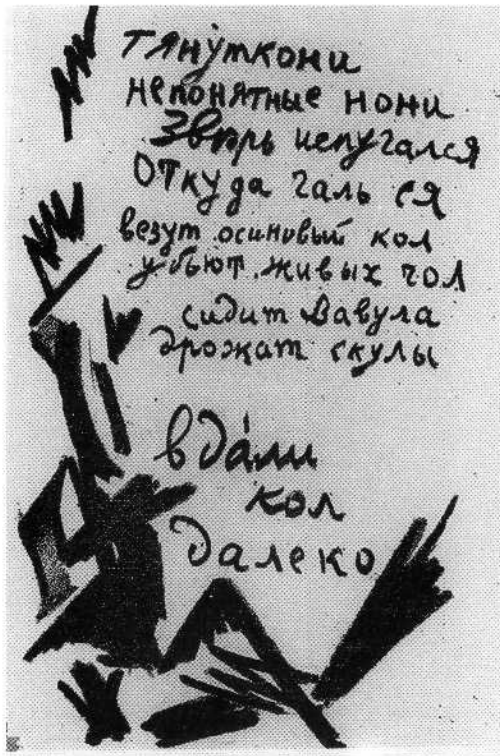 тянут кони
непонятные нони
Зверь испугался
Откуда галь ся
везут осиновый кол
убьют живых чол
сидит Вавула
дрожат скулы
вда́ли
кол
далеко